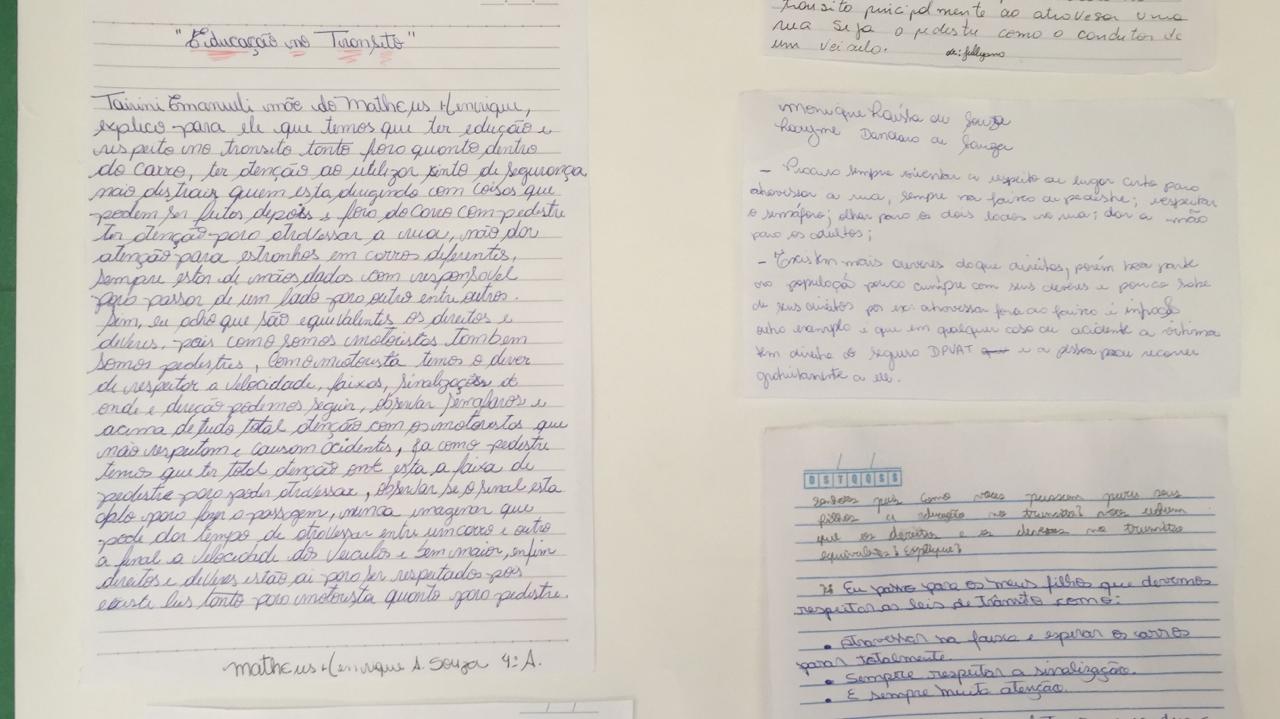 "Educação no Transito"
Tairini Emanueli mãe do Matheus Henrique,
explico para ele que temos que ter edução e
respeito no transito tanto fora quanto dentro
do carro, ter atenção ao utilizar sinto de segurança
não distrair quem esta dirigindo com coisas que
podem ser feitas depois e fora do carro com pedestre
ter atenção para atravessar a rua, não dar
atenção para estranhos em carros diferentes,
sempre estar de mãos dadas com responsável
para passar de um lado para outro entre outros.
Sim, eu acho que são equivalentes os direitos e
deveres, pois como somos motoristas tambem
somos pedestres, Como motorista temos o dever
de respeitar a velocidade, faixas, sinalizações de
onde e direção podemos seguir, observar semafaros e
acima de tudo total atenção com os motoristas que
não respeitam e causam acidentes, Ja como pedestre
temos que ter total atenção onde esta a faixa de
pedestre para poder atravessar, observar se o sinal esta
apto para fazer a passagem, nunca imaginar que
pode dar tempo de atravessar entre um carro e outro
a final a velocidade do veiculos e bem maior, enfim
direitos e deveres estão ai para ser respeitados pos
existe leis tanto para motorista quanto para pedestre.
Matheus Henrique A. Souza 4º A.
transito principalmente ao atravesar uma
rua seja o pedestre como o condutor de
um veiculo.
de:
Monique de Souza
de Souza
- Procuro sempre orientar a respeito do lugar certo para
atravessar a rua, sempre na faixa de pedestre; respeitar
o semáforo; olhar para os dois lados na rua; dar a mão
para os adultos;
- Existem mais deveres do que direitos, porém boa parte
da população pouco cumpre com seus deveres e pouco sabe
de seus direitos por ex: atravessar fora da faixa é infração
outro exemplo é que em qualquer caso de acidente a vítima
tem direito ao seguro DPVAT e a pessoa pode recorrer
gratuitamente a ele.
D S T Q Q S S
pais como vocês passam para seus
filhos a educação no transito? Vocês
que os direitos e os deveres no transito
equivalentes? Explique?
R: Eu passo para os meus filhos que devemos
respeitar as leis de trânsito como:
• Atravessar na faixa e esperar os carros
parar totalmente.
• Sempre respeitar a sinalização.
• E sempre muita atenção.